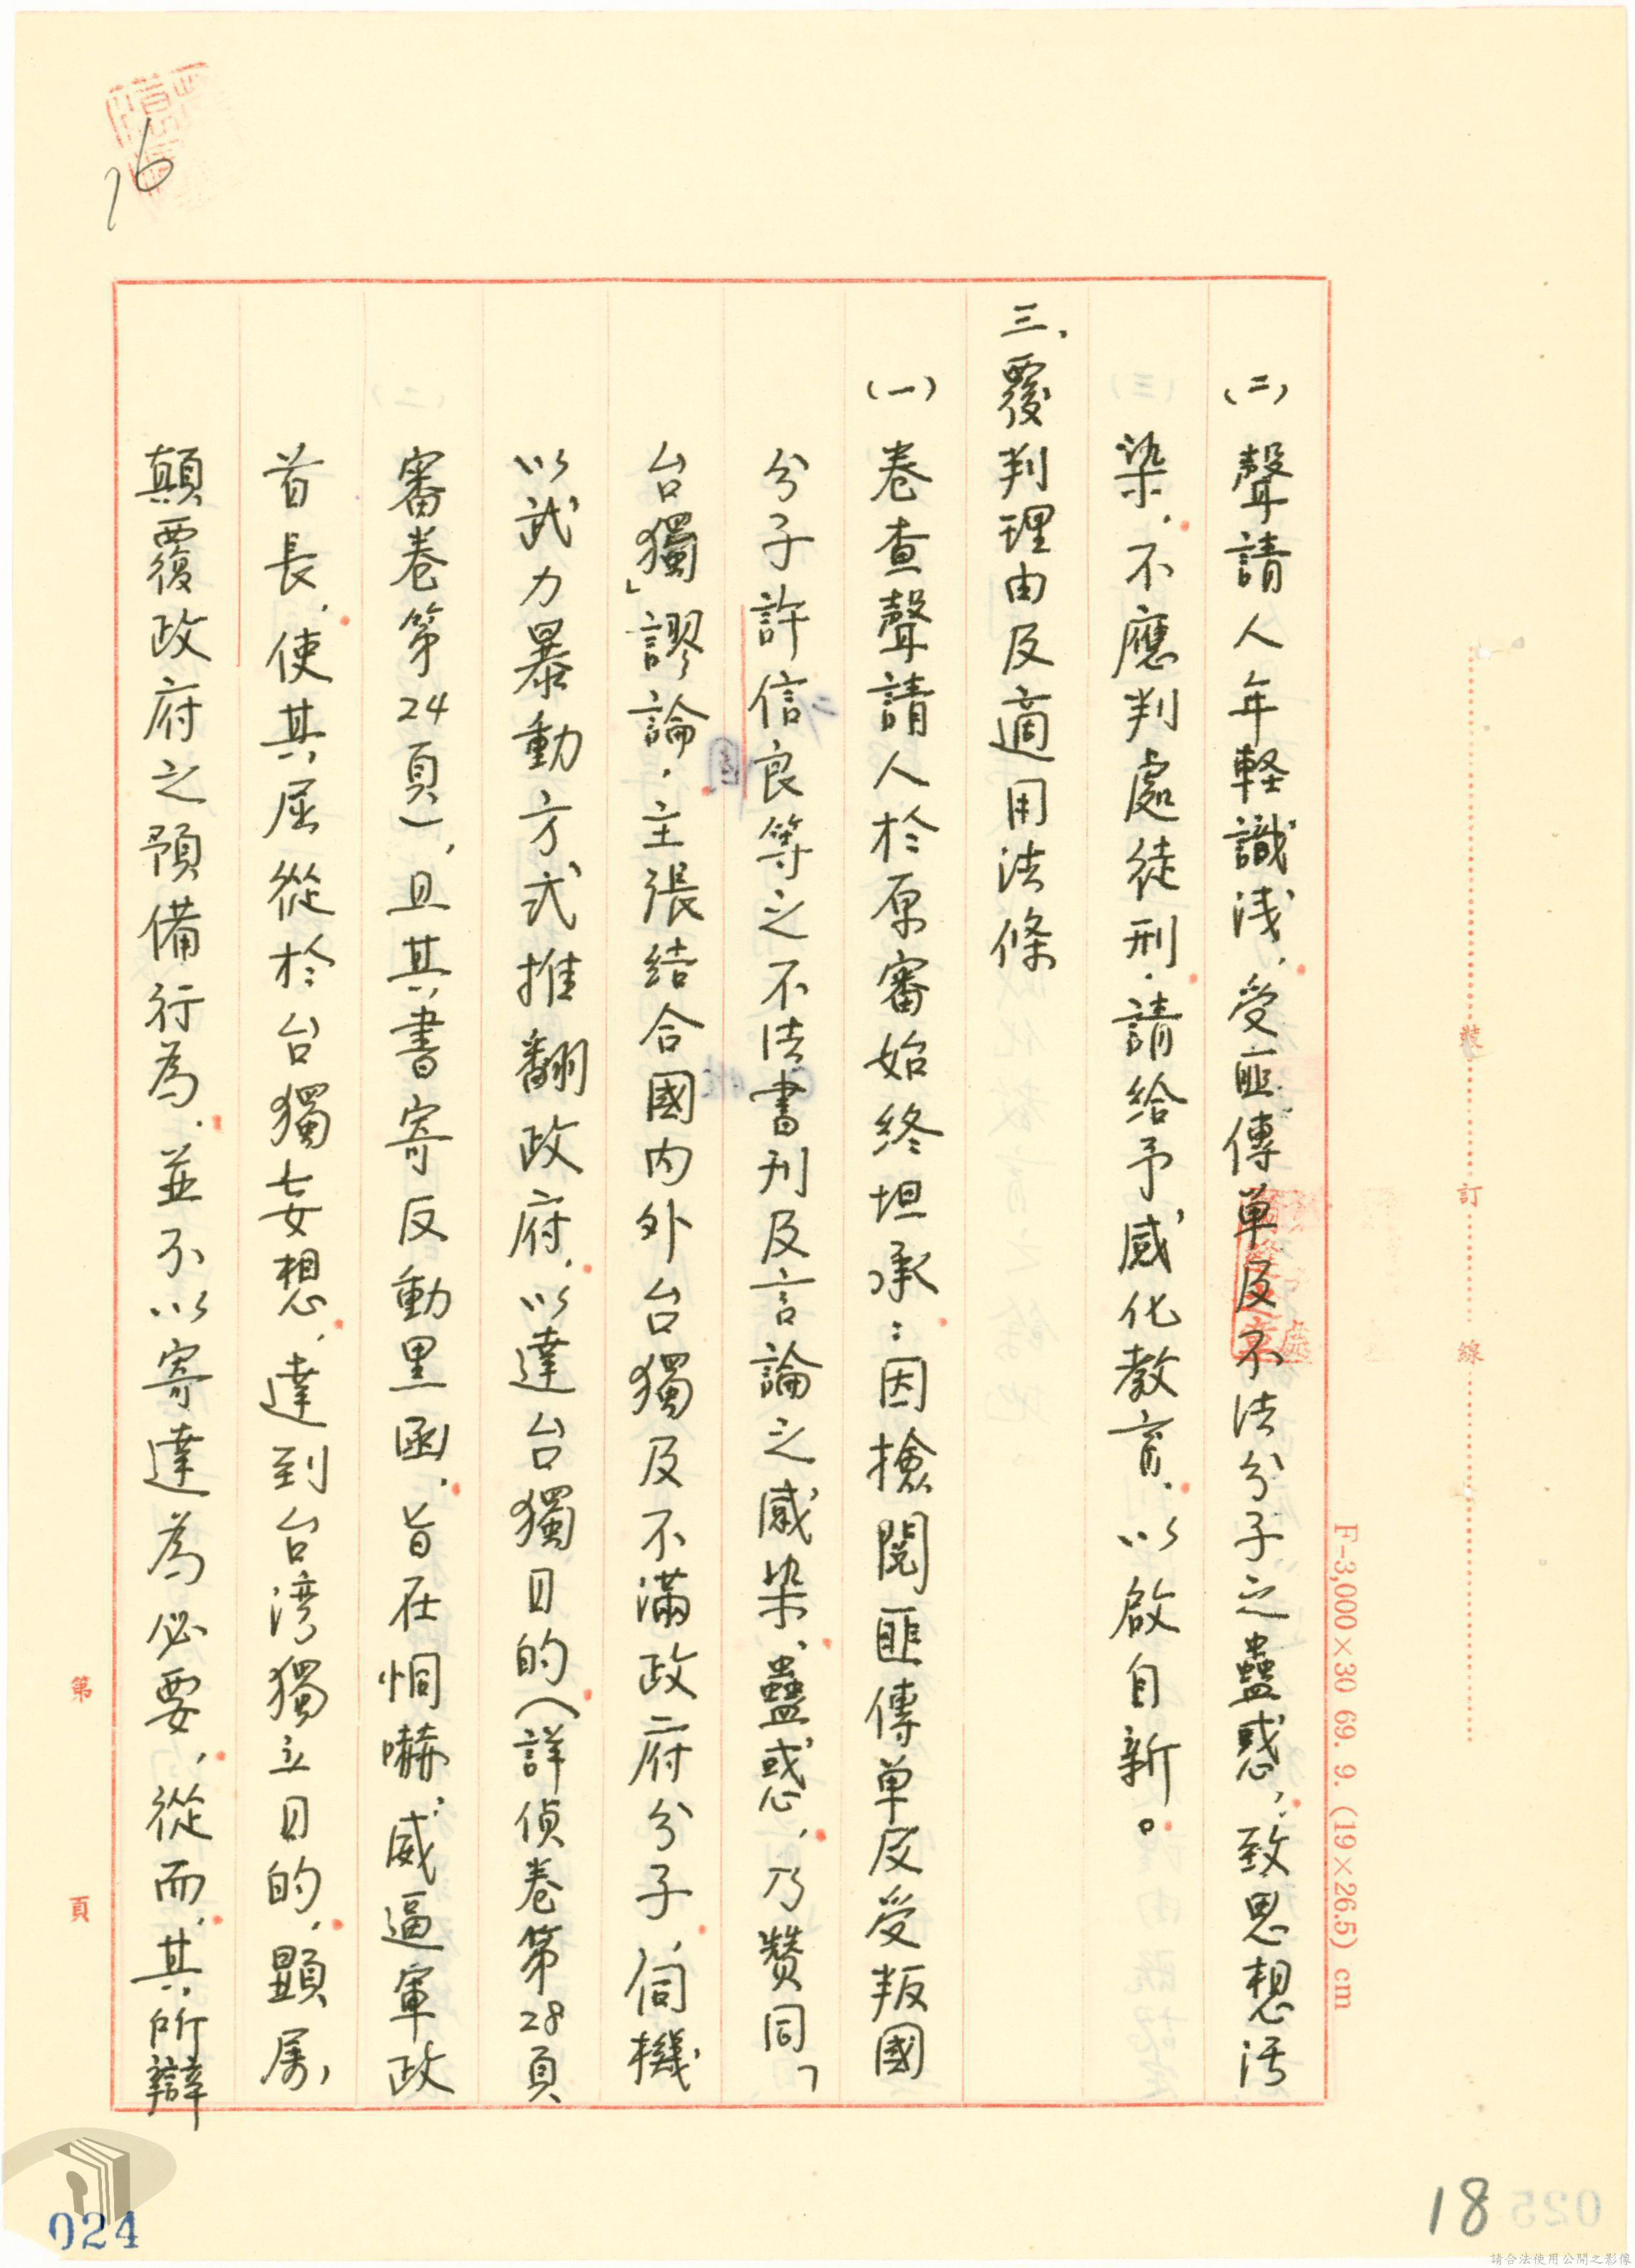 16
(二)聲請人年軽識浅，受匪傳单及不法分子之蠱惑，致思想污
染，不應判處徒刑，請給予感化教育，以啟自新。
三、覆判理由及適用法條
(一)卷查聲請人於原審始終坦承：因撿閱匪傳单及受叛國
分子許信良等之不法書刊及言論之感染、蠱惑，乃贊同「
台獨」謬論，主張結合國内外台獨及不滿政府分子，伺機
以武力暴動方式推翻政府，以達台獨目的（詳偵卷第28頁
審卷第24頁），且其書寄反動黑函，旨在恫嚇、威逼軍政
首長，使其屈從於台獨妄想，達到台湾獨立目的，顯屬
顛覆政府之預備行為，並不以寄達為必要，從而，其所辯
裝 訂 線
F-3,000×30 69. 9. (19×26.5) cm
第 頁
024
18
025
請合法使用公開之影像